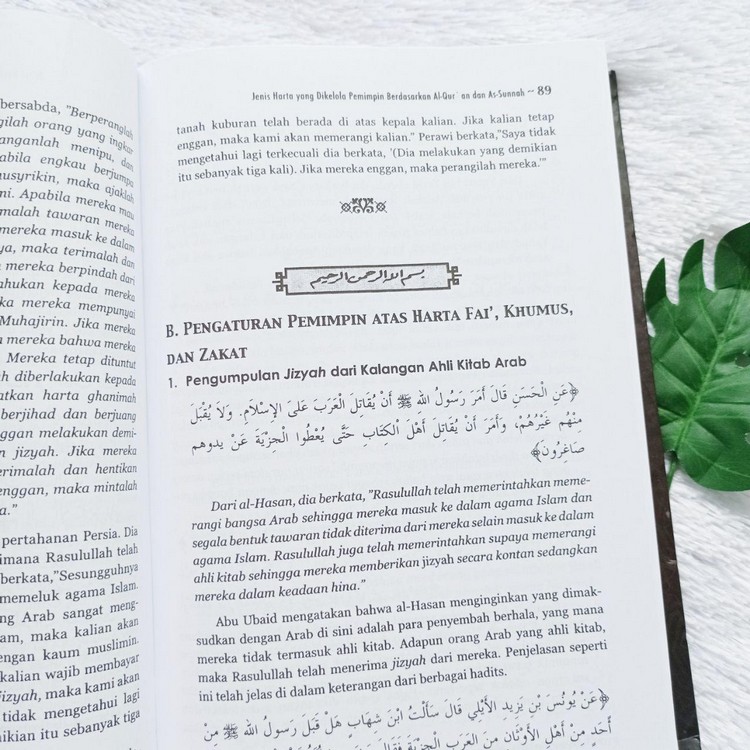 bersabda, "Berperanglah
gilah orang yang ingkar
anganlah menipu, dan
abila engkau berjumpa
usyrikin, maka ajaklah
ni. Apabila mereka mau
malah tawaran mereka
mereka masuk ke dalam
ya, maka terimalah dan
n mereka berpindah dari
ahukan kepada mereka
ka mereka mempunyai
Muhajirin. Jika mereka
n mereka bahwa mereka
Mereka tetap dituntut
h diberlakukan kepada
atkan harta ghanimah
berjihad dan berjuang
ggan melakukan demi-
n jizyah. Jika mereka
erimalah dan hentikan
enggan, maka mintalah
a."
pertahanan Persia. Dia
imana Rasulullah telah
berkata,"Sesungguhnya
memeluk agama Islam.
ng Arab sangat meng-
am, maka kalian akan
engan kaum muslimin.
kalian wajib membayar
jizyah, maka kami akan
tidak mengetahui lagi
ikian itu sebanyak tiga
Jenis Harta yang Dikelola Pemimpin Berdasarkan Al-Qur`an dan As-Sunnah ~ 89
tanah kuburan telah berada di atas kepala kalian. Jika kalian tetap
enggan, maka kami akan memerangi kalian." Perawi berkata,"Saya tidak
mengetahui lagi terkecuali dia berkata, '(Dia melakukan yang demikian
itu sebanyak tiga kali). Jika mereka enggan, maka perangilah mereka.'"
بسم الله الرحمن الرحيم
B. Pengaturan Pemimpin atas Harta Fai', Khumus,
dan Zakat
1. Pengumpulan Jizyah dari Kalangan Ahli Kitab Arab
﴿عَنِ الْحَسَنِ قَالَ أَمَرَ رَسُولُ اللهِ ﷺ أَنْ يُقَاتِلَ الْعَرَبَ عَلَى الإِسْلَامِ. وَلَا يُقْبَلَ
مِنْهُم غَيْرُهُمْ، وَأَمَرَ أَنْ يُقَاتِلَ أَهْلَ الْكِتَابِ حَتَّى يُعْطُوا الْجِزْيَةَ عَنْ يدوهم
صَاغِرُونَ﴾
Dari al-Hasan, dia berkata, "Rasulullah telah memerintahkan meme-
rangi bangsa Arab sehingga mereka masuk ke dalam agama Islam dan
segala bentuk tawaran tidak diterima dari mereka selain masuk ke dalam
agama Islam. Rasulullah juga telah memerintahkan supaya memerangi
ahli kitab sehingga mereka memberikan jizyah secara kontan sedangkan
mereka dalam keadaan hina."
Abu Ubaid mengatakan bahwa al-Hasan menginginkan yang dimak-
sudkan dengan Arab di sini adalah para penyembah berhala, yang mana
mereka tidak termasuk ahli kitab. Adapun orang Arab yang ahli kitab,
maka Rasulullah telah menerima jizyah dari mereka. Penjelasan seperti
ini telah jelas di dalam keterangan dari berbagai hadits.
﴿عَنْ يُونُسَ بْنِ يَزِيدِ الأَيْلِي قَالَ سَأَلْتُ ابْنَ شِهَابٍ هَلْ قَبَلَ رَسُولُ اللهِ ﷺ مِنْ
أَحَدٍ مِنْ أَهْلِ الأَوْثَانِ مِنَ الْعَرَبِ الْجِزْيَةَ